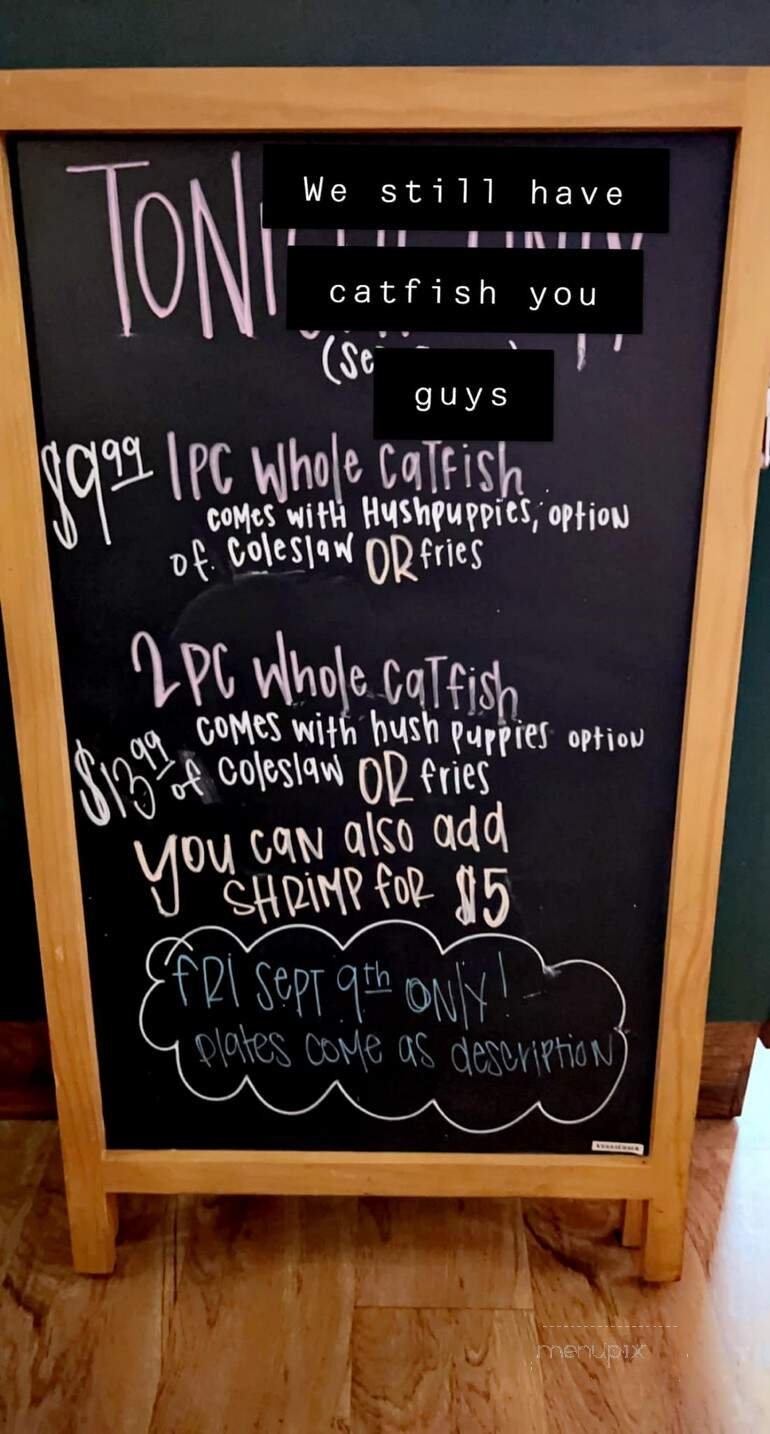 We still have
catfish you
guys
$9.99 1PC Whole Catfish
comes with Hushpuppies, option
of coleslaw OR fries
2PC Whole Catfish
$13.99 comes with hush puppies option
of coleslaw OR fries
you can also add
SHRIMP FOR $5
FRI SEPT 9th ONLY!
plates come as description
menupix